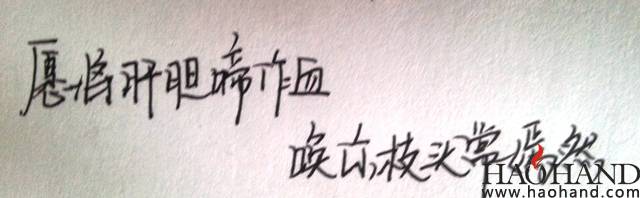 愿倾肝胆啼作血
唤尔枝头常嫣然
HAOHAND
www.haohand.com